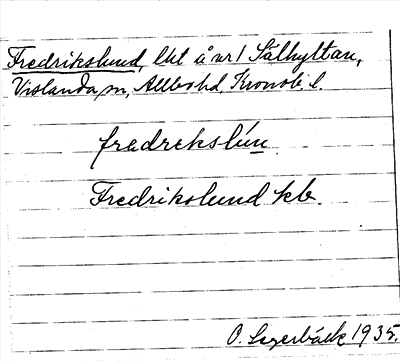 Fredrikslund, lht å nr 1 Sälhyltan,
Vislanda sn, Allbo hd, Kronob. l.
fredrekslún
Fredrikslund kb.
O. Lagerbäck 1935.